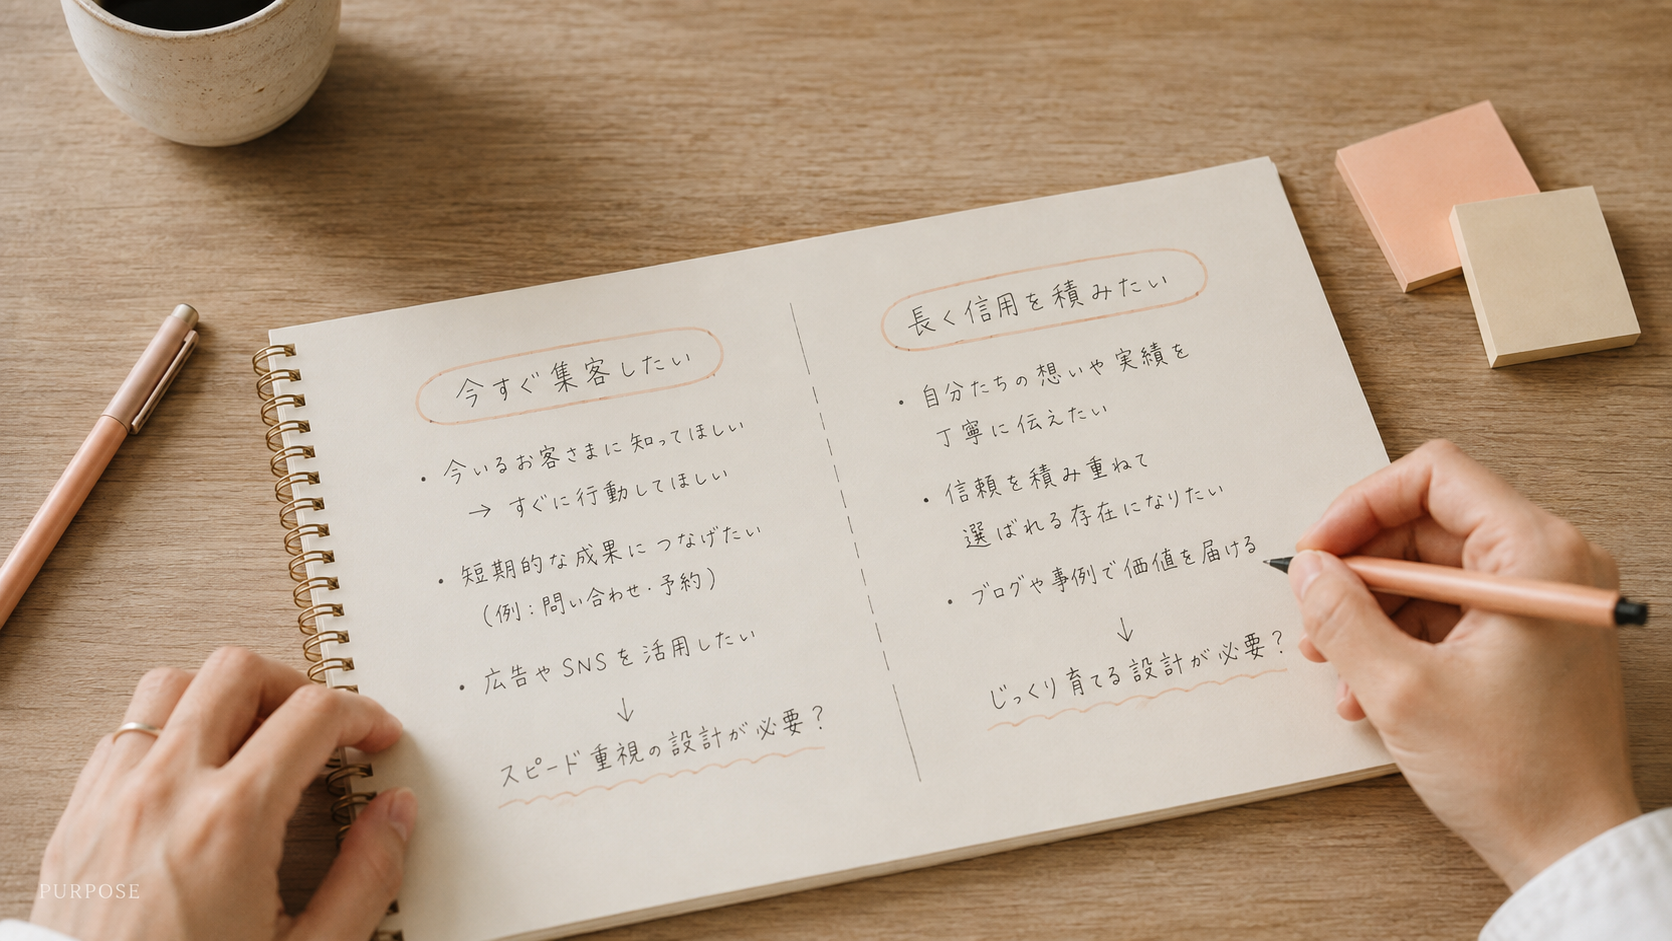 今すぐ集客したい
・今いるお客さまに知ってほしい
→ すぐに行動してほしい
・短期的な成果につなげたい
(例：問い合わせ・予約)
・広告やSNSを活用したい
↓
スピード重視の設計が必要？
長く信用を積みたい
・自分たちの想いや実績を
丁寧に伝えたい
・信頼を積み重ねて
選ばれる存在になりたい
・ブログや事例で価値を届ける
↓
じっくり育てる設計が必要？
PURPOSE